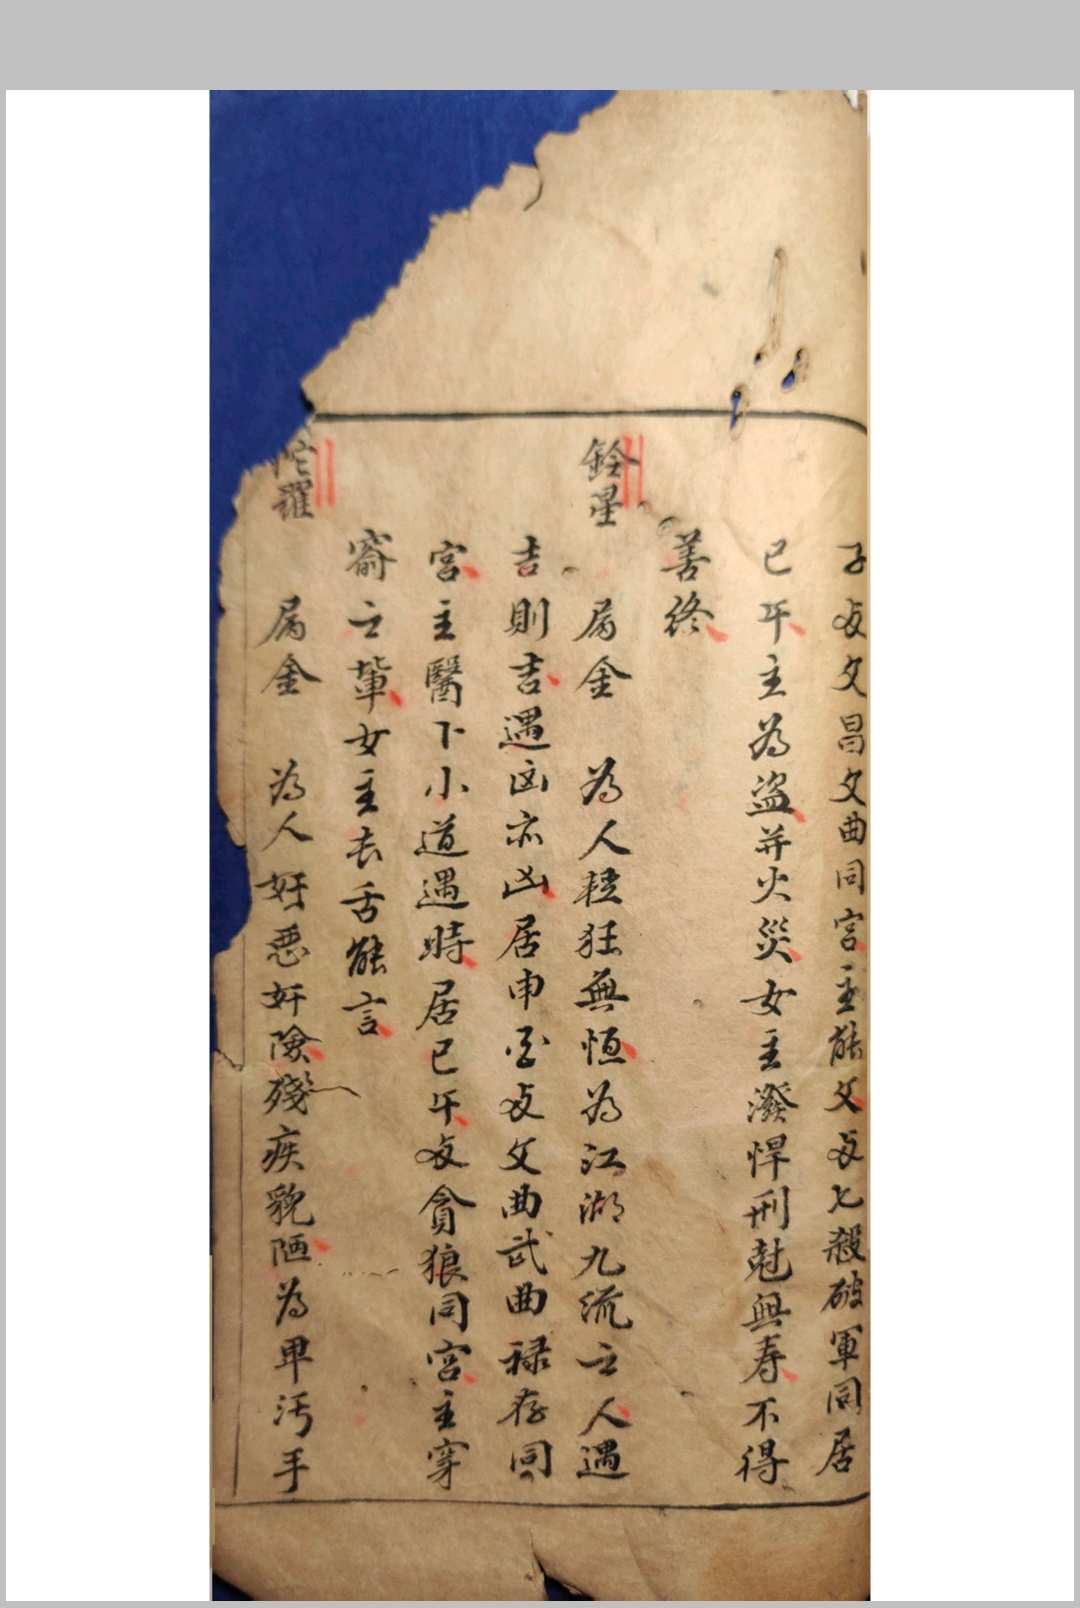 子与文昌文曲同宮主能文与七殺破軍同居
巳午主為盗并火災女主潑悍刑尅無寿不得
善终
鈴星 属金 為人轻狂無恒為江湖九流之人遇
吉則吉遇凶亦凶居申宫与文曲武曲禄存同
宮主醫卜小道遇時居巳午与貪狼同宮主穿
窬之輩女主長舌能言
陀羅 属金 為人奸惡奸險殘疾貌陋為卑汚手